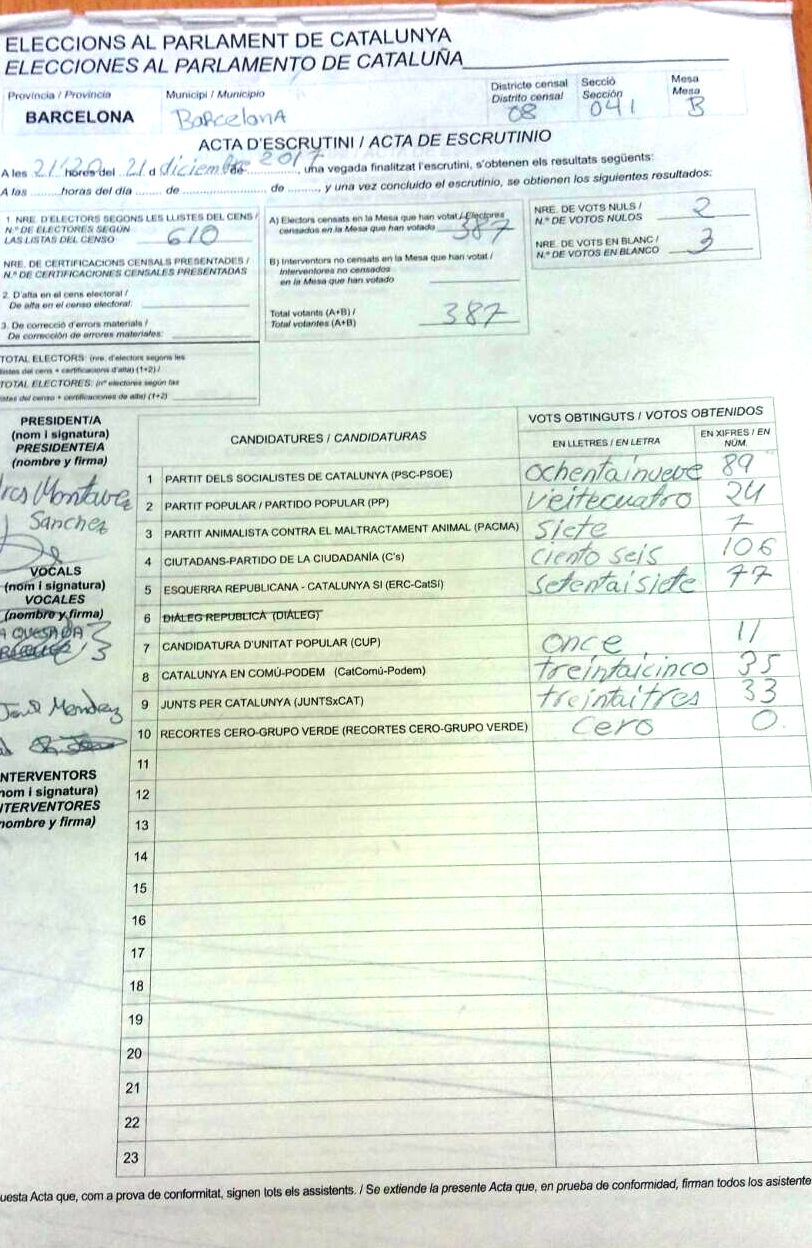 ELECCIONS AL PARLAMENT DE CATALUNYA
ELECCIONES AL PARLAMENTO DE CATALUÑA
Província / Provincia
BARCELONA
Municipi / Municipio
Barcelona
Districte censal
Distrito censal
08
Secció
Sección
041
Mesa
Mesa
B
ACTA D'ESCRUTINI / ACTA DE ESCRUTINIO
A les 21'20 hores del 21 d diciembre de 2017, una vegada finalitzat l'escrutini, s'obtenen els resultats següents:
A las ........ horas del día ..... de ..................... de ........, y una vez concluido el escrutinio, se obtienen los siguientes resultados:
1 NRE. D'ELECTORS SEGONS LES LLISTES DEL CENS /
N.º DE ELECTORES SEGÚN
LAS LISTAS DEL CENSO 610
NRE. DE CERTIFICACIONS CENSALS PRESENTADES /
N.º DE CERTIFICACIONES CENSALES PRESENTADAS
2. D'alta en el cens electoral /
De alta en el censo electoral:
3. De correcció d'errors materials /
De corrección de errores materiales:
TOTAL ELECTORS: (nre. d'electors segons les
llistes del cens + certificacions d'alta) (1+2) /
TOTAL ELECTORES: (nº electores según las
listas del censo + certificaciones de alta) (1+2)
A) Electors censats en la Mesa que han votat / Electores
censados en la Mesa que han votado 387
B) Interventors no censats en la Mesa que han votat /
Interventores no censados
en la Mesa que han votado
Total votants (A+B) /
Total votantes (A+B) 387
NRE. DE VOTS NULS /
N.º DE VOTOS NULOS 2
NRE. DE VOTS EN BLANC /
N.º DE VOTOS EN BLANCO 3
PRESIDENT/A
(nom i signatura)
PRESIDENTE/A
(nombre y firma)
Sanchez
VOCALS
(nom i signatura)
VOCALES
(nombre y firma)
A QUESADA
Mendez
INTERVENTORS
(nom i signatura)
INTERVENTORES
(nombre y firma)
CANDIDATURES / CANDIDATURAS
VOTS OBTINGUTS / VOTOS OBTENIDOS
EN LLETRES / EN LETRA
EN XIFRES / EN
NÚM.
1 PARTIT DELS SOCIALISTES DE CATALUNYA (PSC-PSOE) ochentainueve 89
2 PARTIT POPULAR / PARTIDO POPULAR (PP) veitecuatro 24
3 PARTIT ANIMALISTA CONTRA EL MALTRACTAMENT ANIMAL (PACMA) siete 7
4 CIUTADANS-PARTIDO DE LA CIUDADANÍA (C's) ciento seis 106
5 ESQUERRA REPUBLICANA - CATALUNYA SÍ (ERC-CatSí) setentaisiete 77
6 DIÀLEG REPÚBLICA (DIÀLEG)
7 CANDIDATURA D'UNITAT POPULAR (CUP) once 11
8 CATALUNYA EN COMÚ-PODEM (CatComú-Podem) treintaicinco 35
9 JUNTS PER CATALUNYA (JUNTSxCAT) treintaitres 33
10 RECORTES CERO-GRUPO VERDE (RECORTES CERO-GRUPO VERDE) cero 0
11
12
13
14
15
16
17
18
19
20
21
22
23
uesta Acta que, com a prova de conformitat, signen tots els assistents. / Se extiende la presente Acta que, en prueba de conformidad, firman todos los asistente